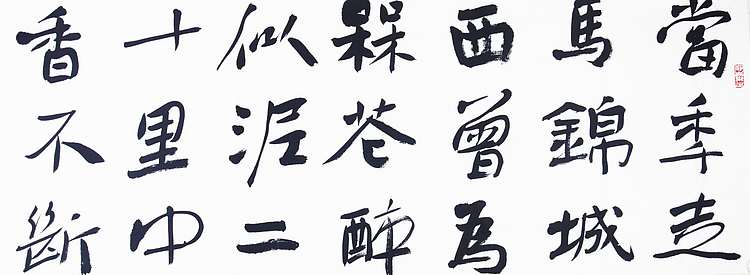 當年走
馬錦城
西曾為
槑花醉
似泥二
十里中
香不斷